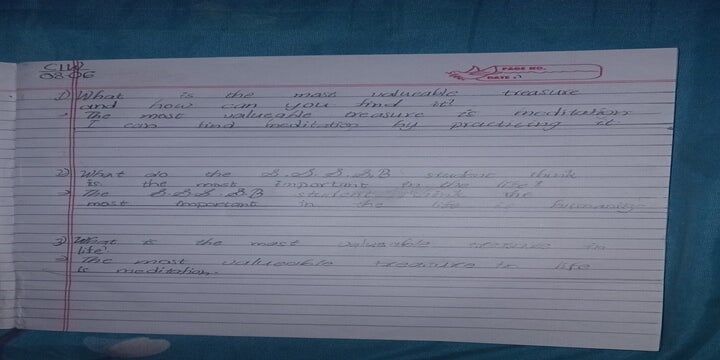 C.W
08-06
PAGE NO.
DATE :
1) What is the most valueable treasure
and how can you find it?
→ The most valueable treasure is meditation
I can find meditation by practicing it.
2) What do the S.S.S.S.B student think
is the most important in the life?
→ The S.S.S.SB student think the
most important in the life is humanity.
3) What is the most valueable treasure in
life.
→ The most valueable treasure in life
is meditation.